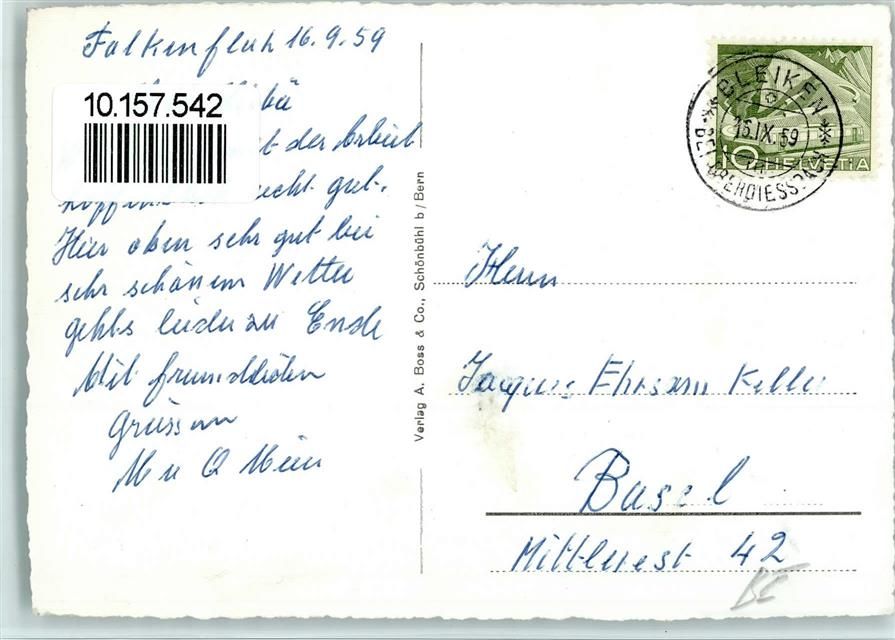 Falkenfluh 16.9.59
10.157.542
der Arbeit
recht gut.
Hier oben sehr gut bei
sehr schönem Wetter
gehts leider zu Ende
Mit freundlichen
Grüssen
Verlag A. Boss & Co., Schönbühl b/Bern
BLEIKEN
16.IX.59
BEI OBERDIESSBACH
10 HELVETIA
Herrn
Jacques Ehrsam Keller
Basel
Mittlerest 42